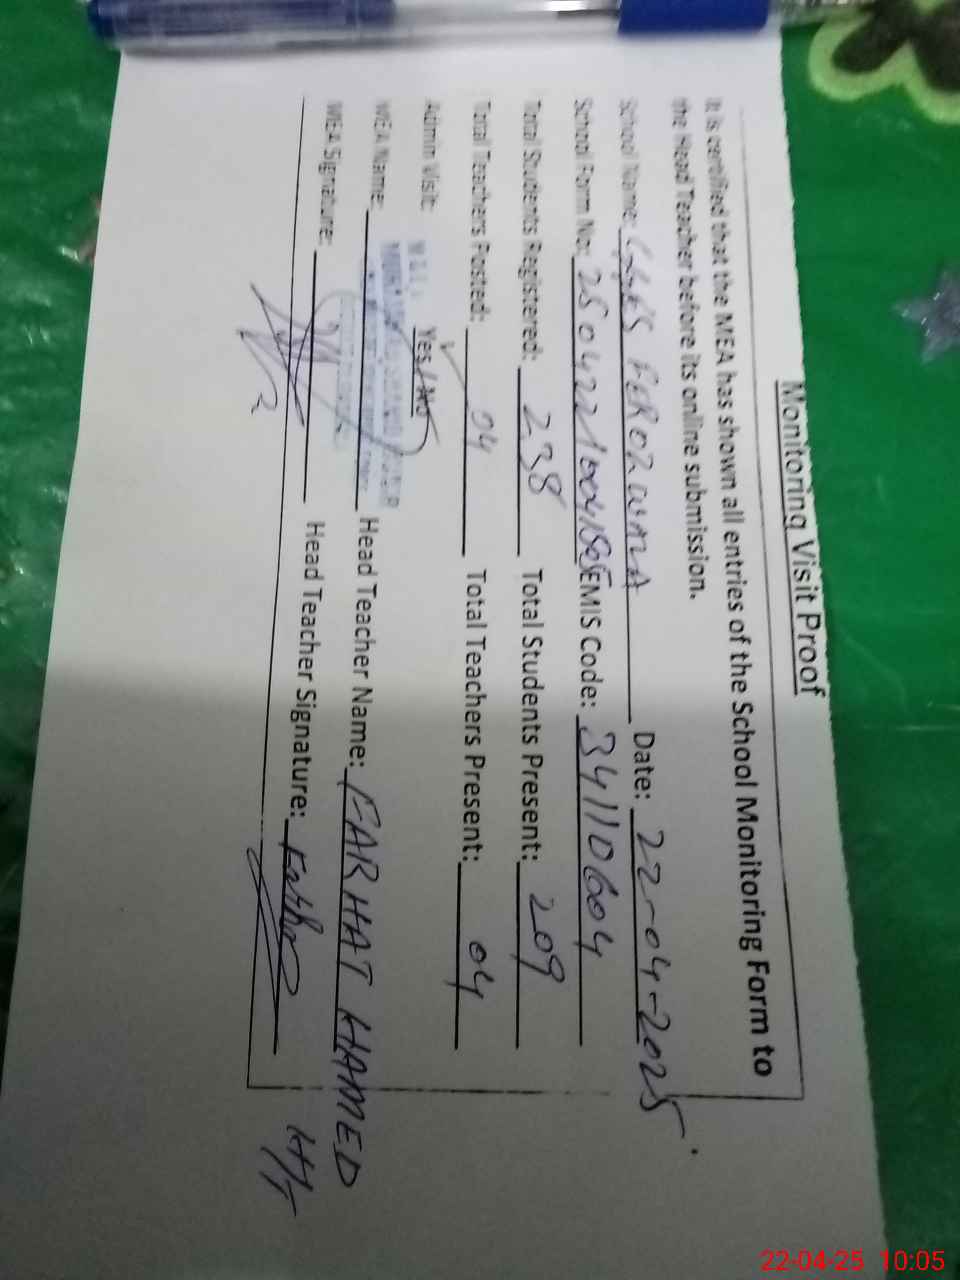 Monitoring Visit Proof
It is certified that the MEA has shown all entries of the School Monitoring Form to
the Head Teacher before its online submission.
School Name: GGES FEROZWALA Date: 22-04-2025
School Form No: EMIS Code: 34110604
Total Students Registered: 238 Total Students Present: 209
Total Teachers Posted: 04 Total Teachers Present: 04
Admin Visit: Yes / No
MEA Name: Head Teacher Name: FARHAT HAMED
MEA Signature: Head Teacher Signature:
H/T
22-04-25 10:05